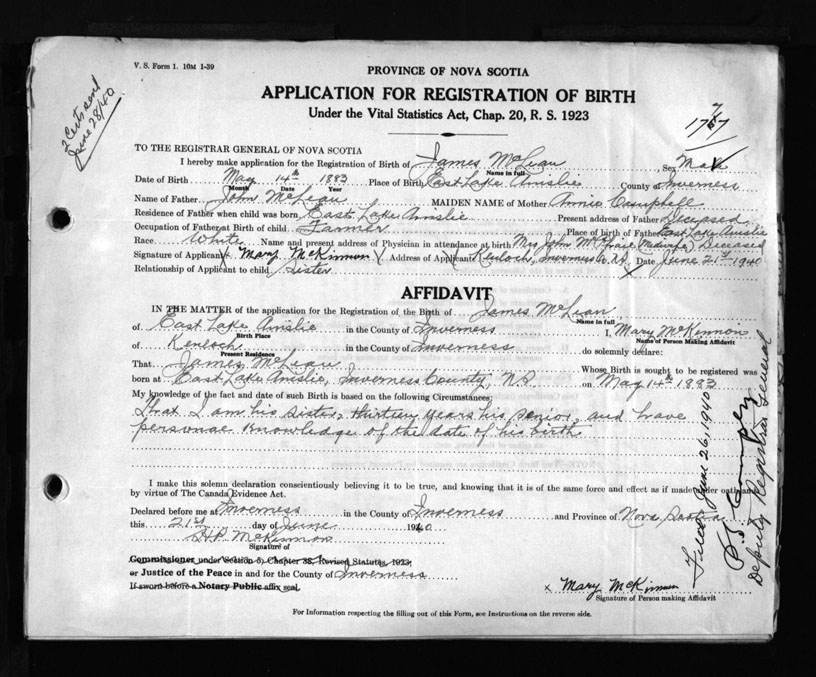 V. S. Form 1. 10M 1-39
2 Certs send
June 28/40
PROVINCE OF NOVA SCOTIA
APPLICATION FOR REGISTRATION OF BIRTH
Under the Vital Statistics Act, Chap. 20, R. S. 1923
TO THE REGISTRAR GENERAL OF NOVA SCOTIA
I hereby make application for the Registration of Birth of James McLean Sex Male
Name in full
Date of Birth May 14th 1883 Place of Birth East Lake Ainslie County of Inverness
Month Date Year
Name of Father John McLean MAIDEN NAME of Mother Annie Campbell
Residence of Father when child was born East Lake Ainslie Present address of Father Deceased
Occupation of Father at Birth of child Farmer Place of birth of Father East Lake Ainslie
Race White Name and present address of Physician in attendance at birth Mrs John McPhail (Midwife) Deceased
Signature of Applicant Mary McKinnon Address of Applicant Kenloch, Inverness Co. N.S. Date June 21st 1940
Relationship of Applicant to child Sister
AFFIDAVIT
IN THE MATTER of the application for the Registration of the Birth of James McLean
Name in full
of East Lake Ainslie in the County of Inverness I, Mary McKennon
Birth Place Name of Person Making Affidavit
of Kenloch in the County of Inverness do solemnly declare:
Present Residence
That James McLean Whose Birth is sought to be registered was
born at East Lake Ainslie, Inverness County, N.S. on May 14th 1883
My knowledge of the fact and date of such Birth is based on the following Circumstances:
That I am his sister, thirteen years his senior, and have
personal knowledge of the date of his birth
I make this solemn declaration conscientiously believing it to be true, and knowing that it is of the same force and effect as if made under oath and
by virtue of The Canada Evidence Act.
Declared before me at Inverness in the County of Inverness and Province of Nova Scotia
this 21st day of June 1940
H.P. McKinnon
Signature of
Commissioner under (Section 5) Chapter 38, Revised Statutes, 1923,
or Justice of the Peace in and for the County of Inverness
If sworn before a Notary Public affix seal.
x Mary McKinnon
Signature of Person making Affidavit
For Information respecting the filling out of this Form, see Instructions on the reverse side.
June 26, 1940
Deputy Registrar General